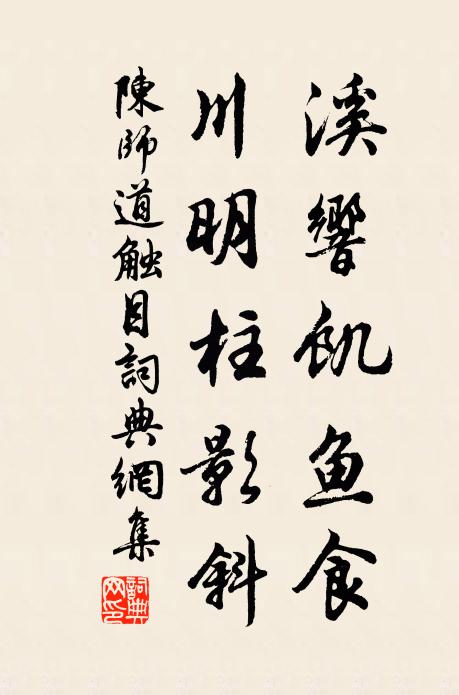 溪響飢魚食
川明柱影斜
陳師道触目詞典網集
詞典网印